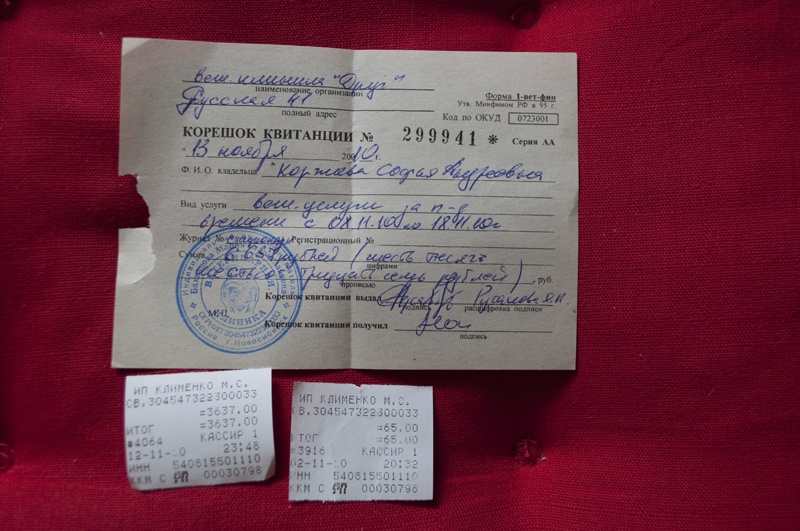 вет. клиника "Друг"
наименование организации
Русская 41
полный адрес
Форма 1-вет-фин
Утв. Минфином РФ в 95 г.
Код по ОКУД 0723001
КОРЕШОК КВИТАНЦИИ № 299941 * Серия АА
13 ноября 2010 г.
Ф. И. О. владельца Коржева Софья Андреевна
Вид услуги вет. услуги за п-д
времени с 08.11.10 по 18.11.10г
Журнал № стационар Регистрационный №
Сумма 6637 рублей (шесть тысяч
цифрами
шестьсот тридцать семь рублей) руб.
прописью
Корешок квитанции выдал
подпись расшифровка подписи
М.П.
Корешок квитанции получил
подпись
ВЕТЕРИНАРНАЯ
КЛИНИКА
Россия г. Новосибирск
ИП КЛИМЕНКО М.С.
СВ.304547322300033
=3637.00
ИТОГ =3637.00
#4064 КАССИР 1
12-11-10 23:48
ИНН 540815501110
ККМ С ФП 00030798
ИП КЛИМЕНКО М.С.
СВ.304547322300033
=65.00
ИТОГ =65.00
#3916 КАССИР 1
02-11-10 20:32
ИНН 540815501110
ККМ С ФП 00030798